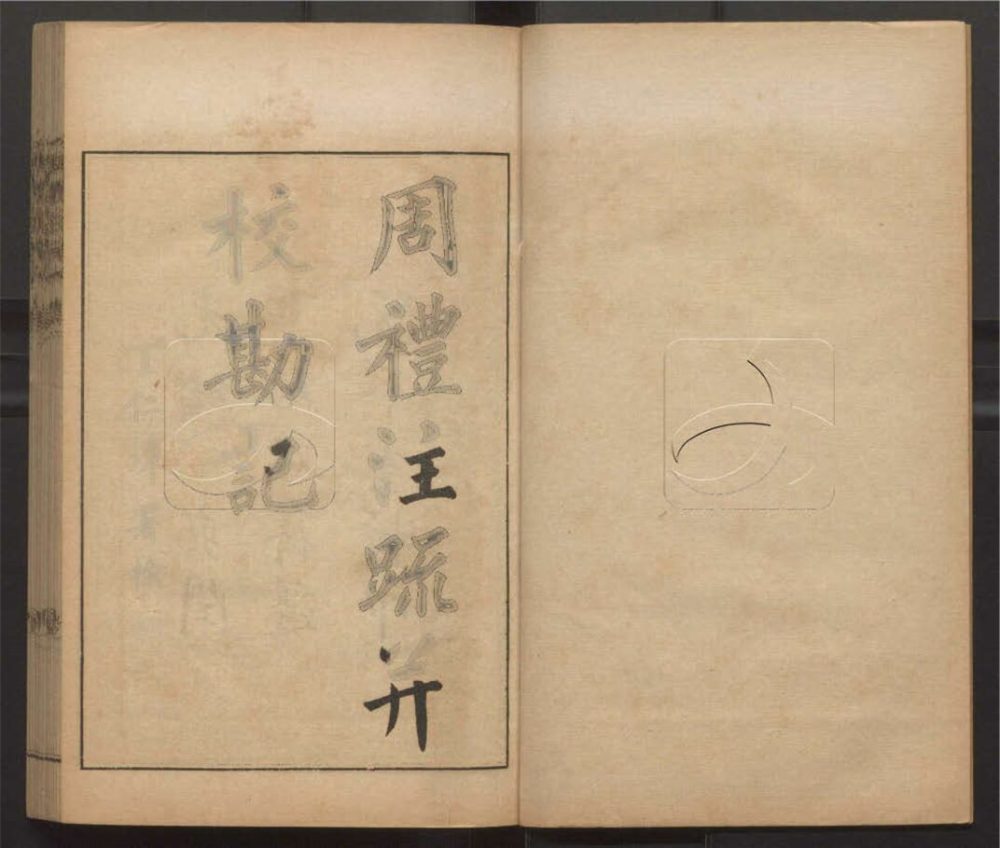 周禮注疏并
校勘記